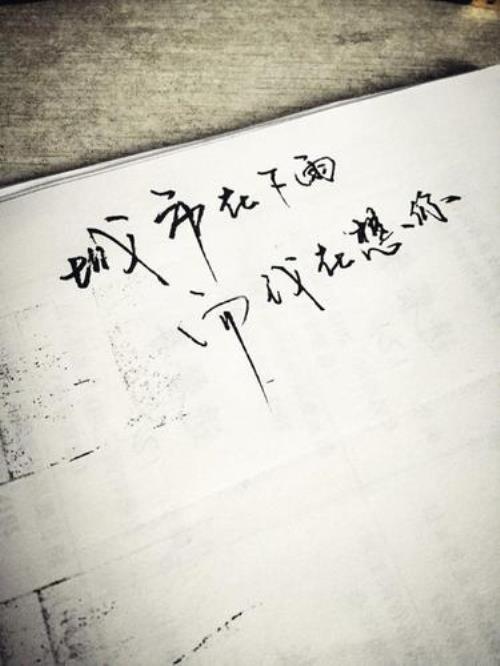 城市在下雨
而我在想你